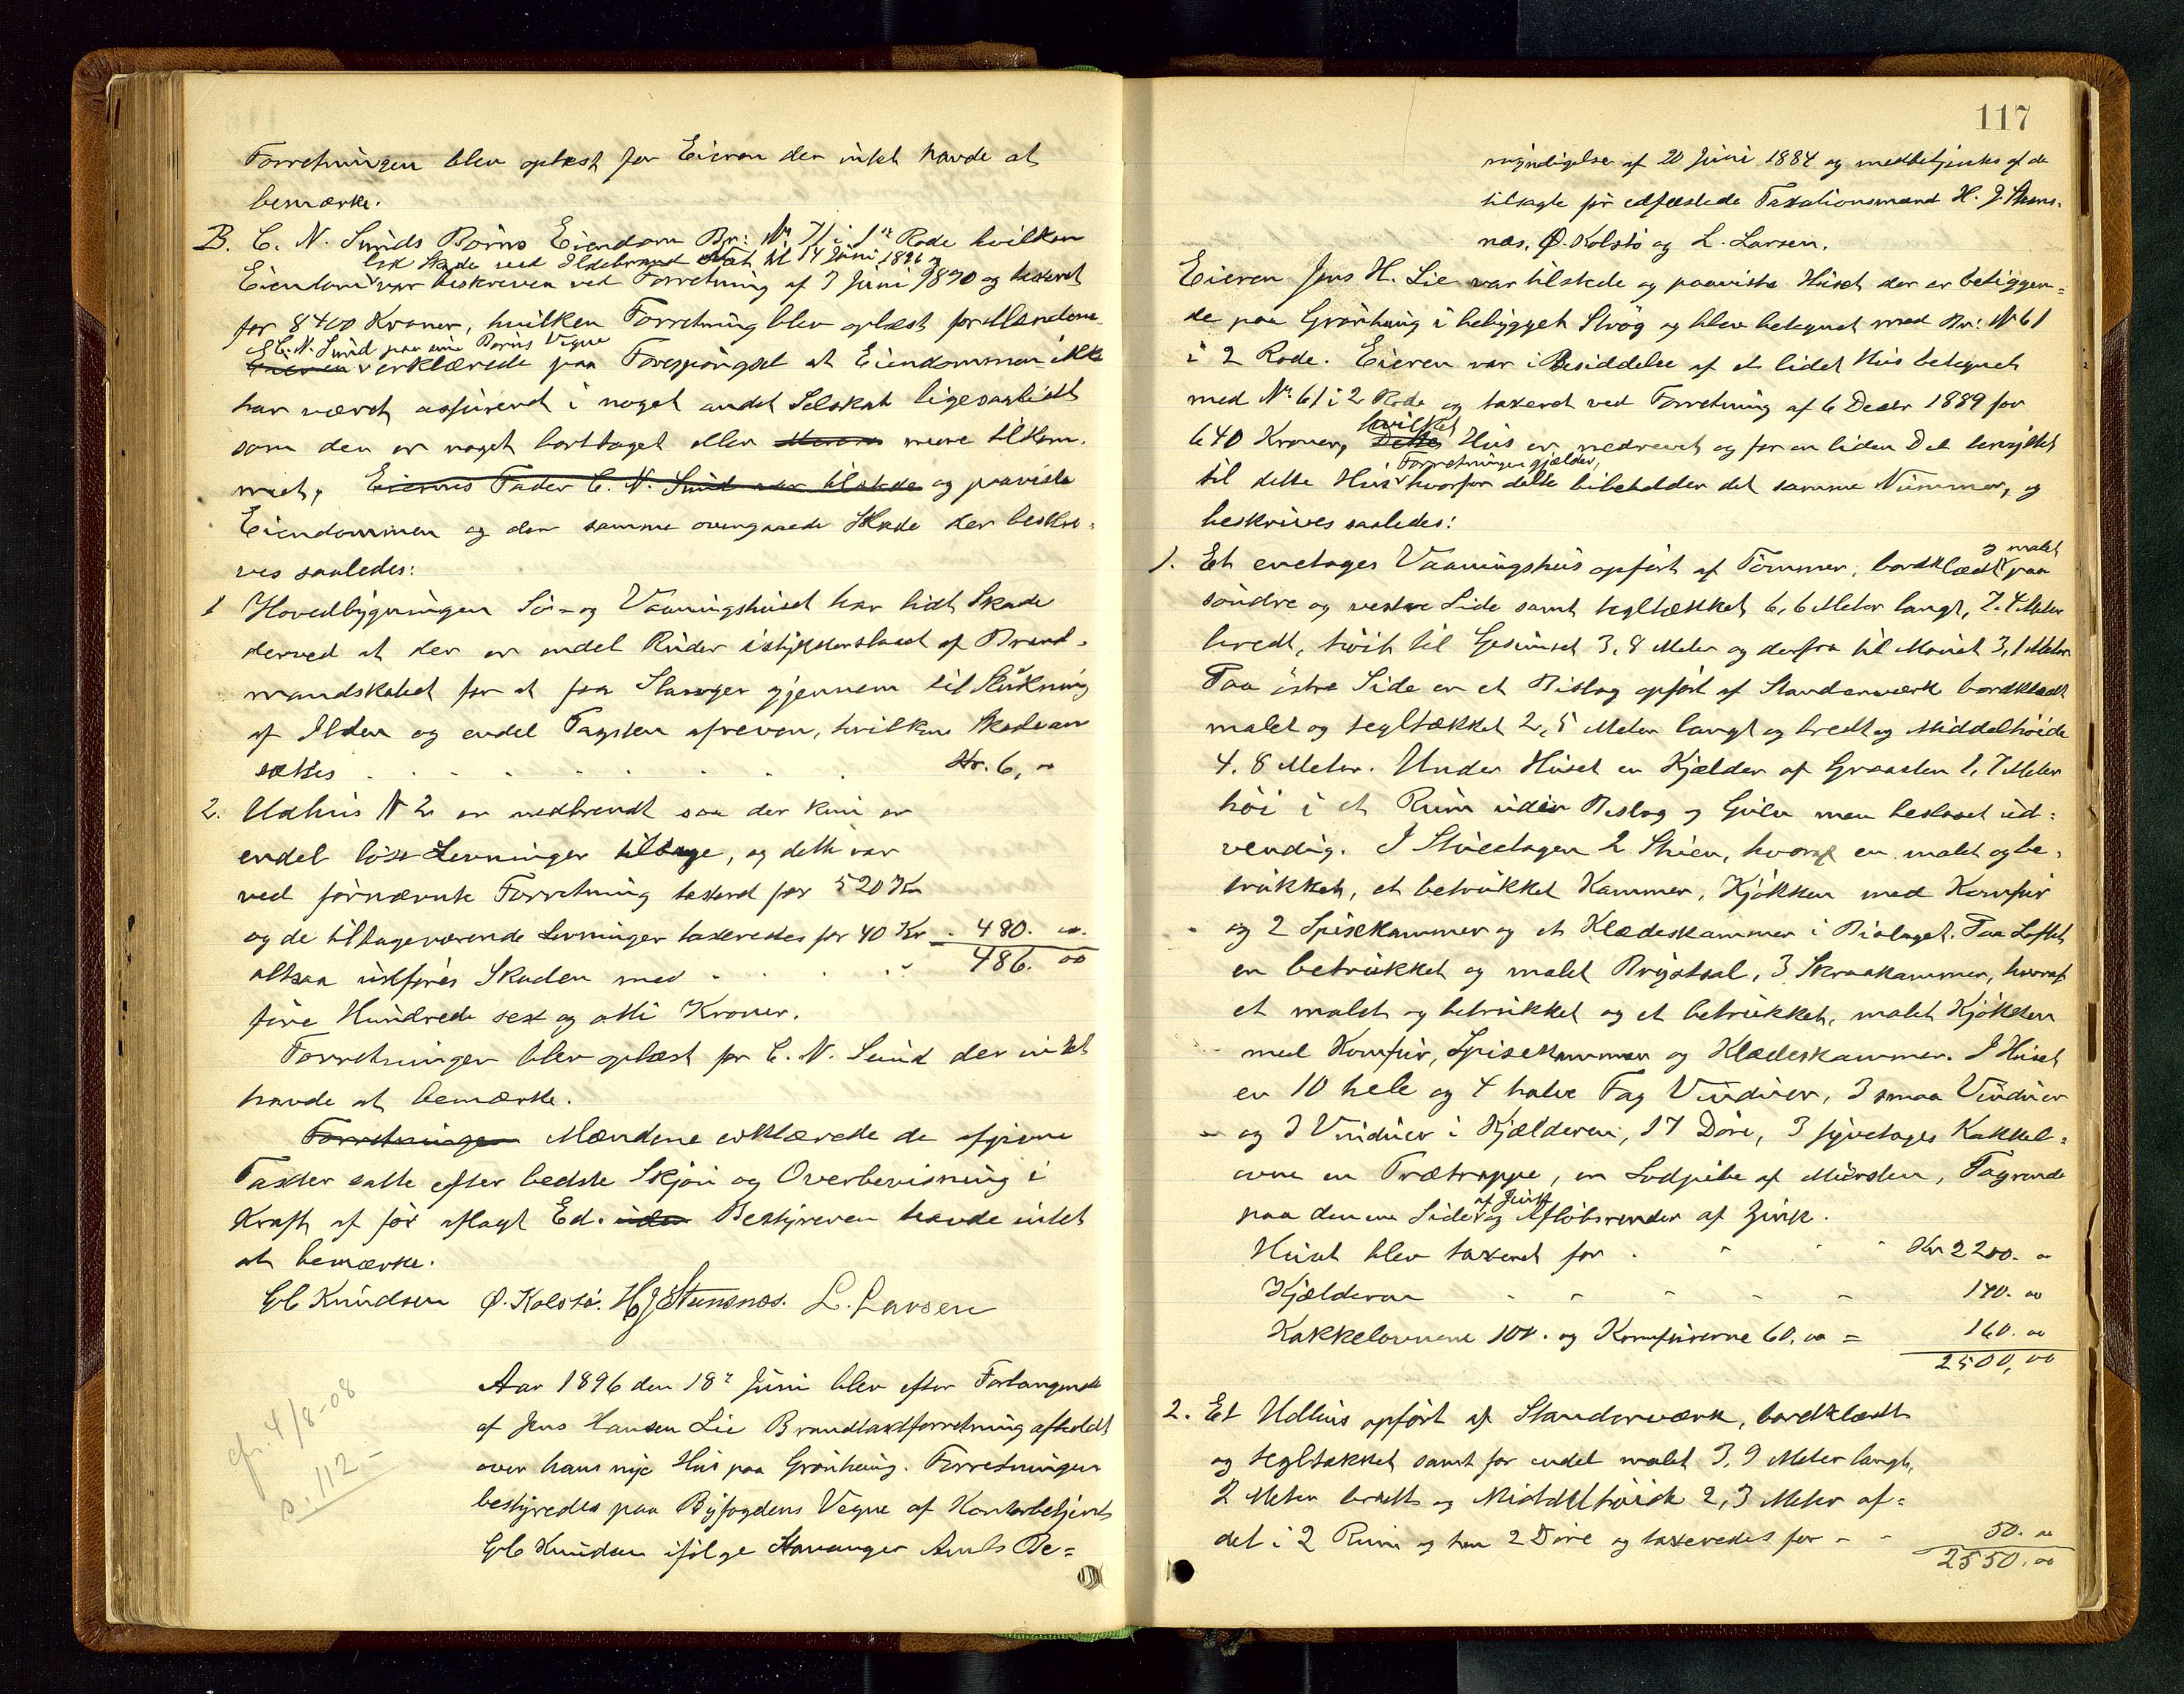 Forretningen blev oplæst for Eieren der intet havde at
bemærke.
B. C. N. Sunds Børns Eiendom Br: № 71 i 1ste Rode hvilken
led Skade ved Ildebrand Nat til 14 Juni 1896 og
Eiendom var beskreven ved Forretning af 3 Juni 1890 og taxeret
for 8400 Kroner, hvilken Forretning blev oplæst for Mændene.
C. N. Sund paa sine Børns Vegne
Eieren erklærede paa Forespørgsel at Eiendommen ikke
har været assureret i noget andet Selskab ligesaalidt
som den er noget borttaget eller mere tilkom-
met, Eiernes Fader C. N. Sund var tilstede og paaviste
Eiendommen og den samme overgaaede Skade der beskri-
ves saaledes:
1 Hovedbygningen Sø- og Vaaningshuset har lidt Skade
derved at der er endel Ruder istykkerslaaet af Brand-
mandskabet for at faa Slanger gjennem til Slukning
af Ilden og endel Tagsten afreven, hvilken Skade an
sættes . . . . . . . Kr. 6, 00
2. Udhus № 2 er nedbrendt saa der kun er
endel løse Levninger tilbage, og dette var
ved førnævnte Forretning taxeret for 520 Kr
og de tilbageværende Levninger taxeredes for 40 Kr - 480. 00.
altsaa udføres Skaden med - . . . 486. 00
fire Hundrede sex og otti Kroner.
Forretningen blev oplæst for C. N. Sund der intet
havde at bemærke.
Forretningen Mændene erklærede de afgivne
Taxter satte efter bedste Skjøn og Overbevisning i
Kraft af før aflagt Ed. uden Bestyreren havde intet
at bemærke.
Knudsen Ø. Kolstø. H J Stensnæs. L. Larsen
Aar 1896 den 18de Juni blev efter Forlangende
af Jens Hansen Lie Brandtaxtforretning afholdt
over hans nye Hus paa Grønhaug. Forretningen
bestyredes paa Byfogdens Vegne af Kontorbetjent
Knudsen ifølge Stavanger Amts Be=
cfr. 4/8-08
s. 112-
117
myndigelse af 20 Juni 1884 og medbetjentes af de
tilsagte før edfæstede Taxationsmænd H. J Stens-
næs, Ø. Kolstø og L. Larsen.
Eieren Jens H. Lie var tilstede og paaviste Huset der er beliggen=
de paa Grønhaug i bebygget Strøg og blev betegnet med Br: № 61
i 2 Rode. Eieren var i Besiddelse af et lidet Hus betegnet
med № 61 i 2 Rode og taxeret ved Forretning af 6 Decbr 1889 for
hvilket
640 Kroner, Dette Hus er nedrevet og for en liden Del benyttet
Forretningen gjælder,
til dette Hus hvorfor dette bibeholder det samme Nummer, og
beskrives saaledes:
og malet
1. Et enetages Vaaningshus opført af Tømmer, bordklædt paa
søndre og vestre Side samt tegltækket 6,6 Meter langt, 7.4 Meter
bredt, høit til Gesimset 3,8 Meter og derfra til Mønet 3,1 Meter
Paa østre Side er et Bislag opført af Standerværk bordklædt
malet og tegltækket 2,5 Meter langt og bredt og Middelhøide
4.8 Meter. Under Huset en Kjælder af Graasten 1,7 Meter
høi i et Rum uden Beslag og Gulv men beslaaet ud=
vendig. I Stueetagen 2 Stuer, hvoraf en malet og be-
trukket, et betrukket Kammer, Kjøkken med Komfur
og 2 Spisekammer og et Klædeskammer i Bislaget. Paa Loftet
en betrukket og malet Brystsal, 3 Skraakammer, hvoraf
et malet og betrukket og et betrukket, malet Kjøkken
med Komfur, Spisekammer og Klædeskammer. I Huset
er 10 hele og 4 halve Fag Vinduer, 3 smaa Vinduer
og 3 Vinduer i Kjælderen, 17 Døre, 3 fyretages Kakkel=
ovne en Trætrappe, en Lodpibe af Mursten, Tagrende
af Zink
paa den ene Side og Afløbsrender af Zink.
Huset blev taxeret for . - . - Kr 2200. 00
Kjælderen - - - - - 140. 00
Kakkelovnene 100. og Komfurerne 60. 00 = 160. 00
2500, 00
2. Et Udhus opført af Standerværk, bordklædt
og tegltækket samt for endel malet 3,9 Meter langt,
2 Meter bredt og Middelhøide 2,3 Meter af=
det i 2 Rum og har 2 Døre og taxeredes for - - 50. 00
2550. 00